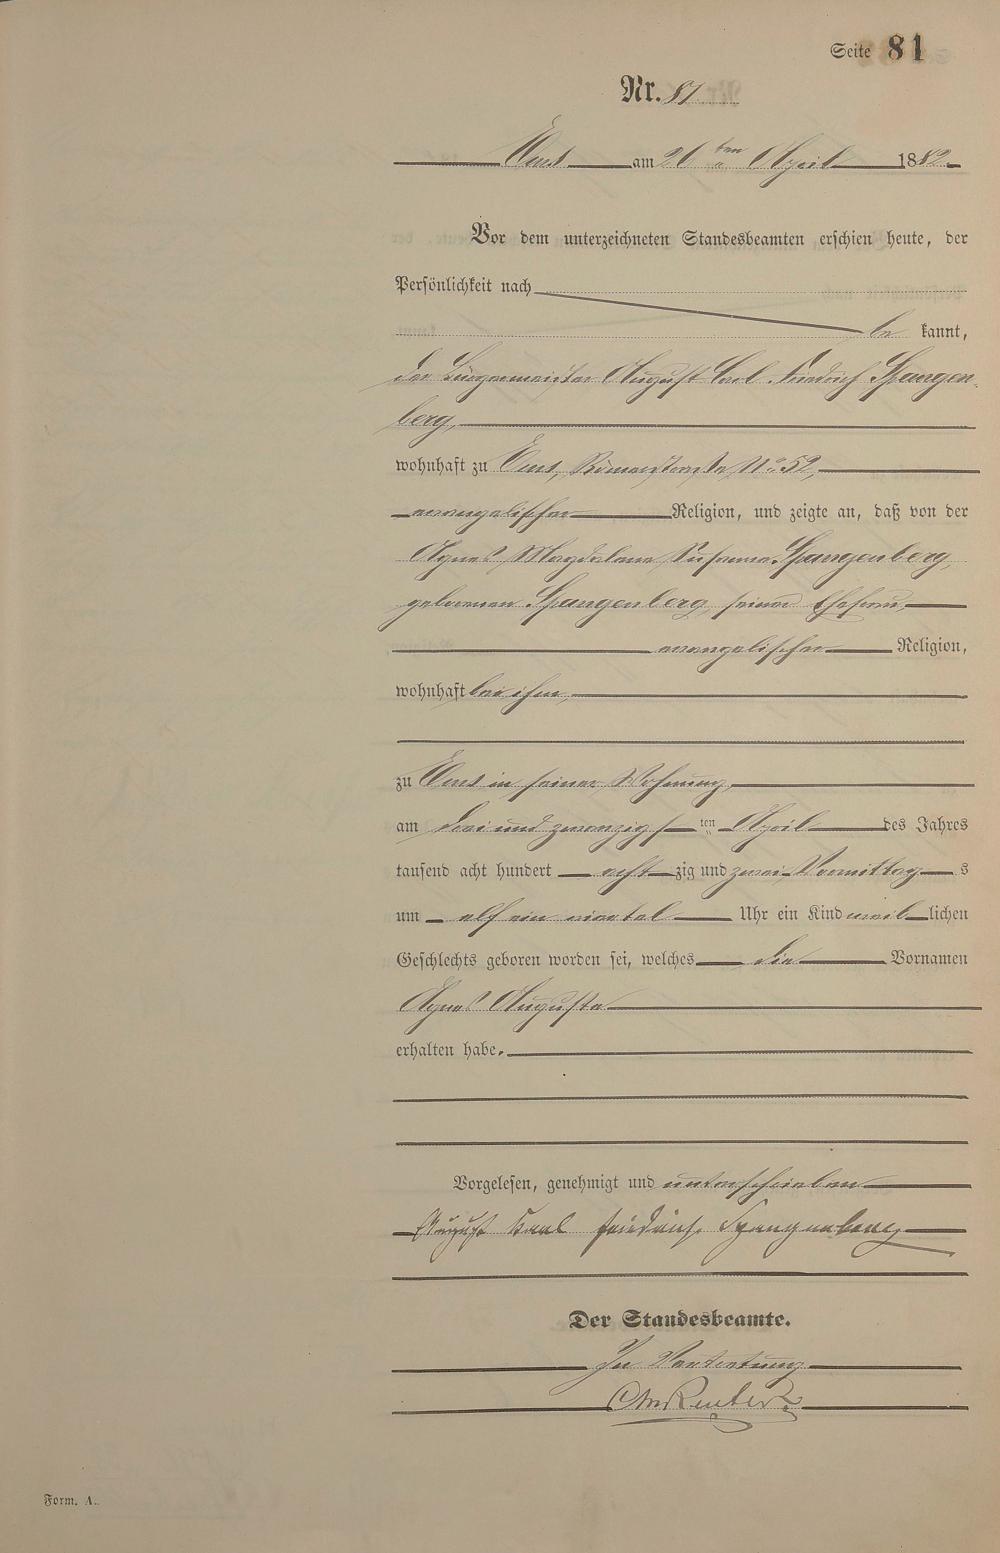 Seite 81
Nr. 81
Ems am 26ten April 1882
Vor dem unterzeichneten Standesbeamten erschien heute, der
Persönlichkeit nach
be kannt,
der Bürgermeister August Carl Friedrich Spangen-
berg,
wohnhaft zu Ems, Römerstraße No 52,
evangelischer Religion, und zeigte an, daß von der
Agnes Magdalena Susanna Spangenberg,
geborenen Spangenberg, seiner Ehefrau,
evangelischer Religion,
wohnhaft bei ihm,
zu Ems in seiner Wohnung,
am drei und zwanzigsten April des Jahres
tausend acht hundert acht zig und zwei Vormittag s
um elf ein viertel Uhr ein Kind weib lichen
Geschlechts geboren worden sei, welches die Vornamen
Agnes Auguste
erhalten habe.
Vorgelesen, genehmigt und unterschrieben
August Karl Friedrich Spangenberg
Der Standesbeamte.
In Vertretung
Reuter
Form. A.